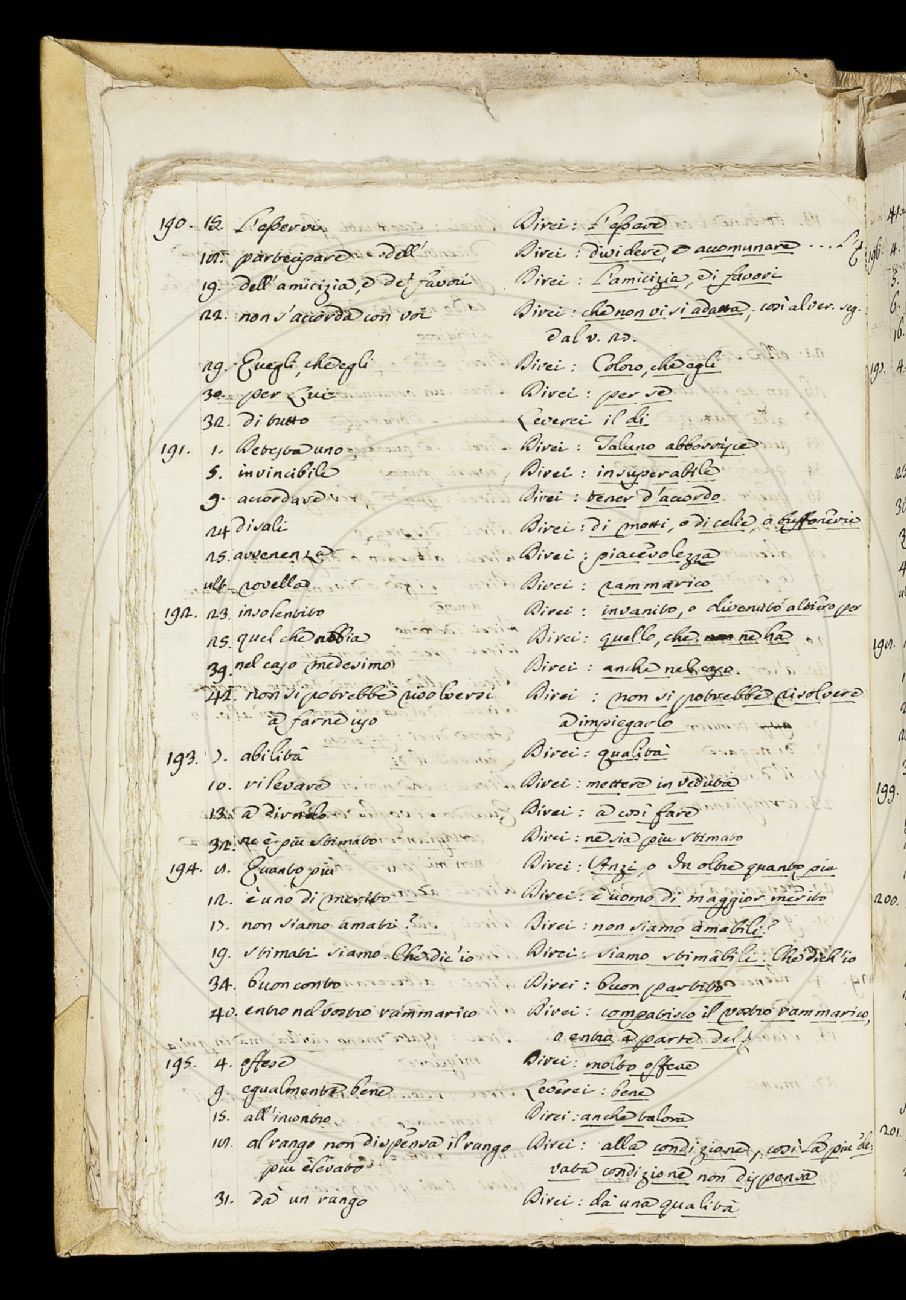 190. 15. L'esservi Direi: L'essere
18. partecipare dell' Direi: dividere, e accomunare ...
19. dell'amicizia, e de' favori Direi: L'amicizia, Di favori
22. non s'accorda con voi Direi: che non vi si adatta, così al ver. seg.
dal v. 25.
29. Quegli, che egli Direi: Coloro, che egli
30. per Lui Direi: per se
32. di tutto Leverei il di
191. 1. Detesta uno Direi: Taluno abborrisce
5. invincibile Direi: insuperabile
9. accordare Direi: tener d'accordo
24 di sali Direi: di motti, o di celie, o buffonerie
25. avvenenza Direi: piacevolezza
ult. novella Direi: rammarico
192. 23. insolentito Direi: invanito, o divenuto altiero per
25. quel che abbia Direi: quello, che ne ha
39. nel caso medesimo Direi: anche nel caso
42. non si potrebbe risolversi Direi: non si potrebbe risolvere
a farne uso a impiegarlo
193. 7. abilità Direi: qualità
10. rilevare Direi: mettere in veduta
13. a dirvelo Direi: a così fare
32. ne è più stimato Direi: ne sia più stimato
194. Quanto più Direi: Anzi, o In oltre quanto più
12. è uno di merito Direi: è uomo di maggior merito
17. non siamo amati? Direi: non siamo amabili?
19. stimati siamo. Che dic'io Direi: siamo stimabili. Che dich'io
34. buon conto Direi: buon partito
40. entro nel vostro rammarico Direi: compatisco il vostro rammarico,
o entro a parte del
195. 4. offese Direi: molto offese
9. egualmente bene Leverei: bene
15. all'incontro Direi: anche talora
18. al rango non dispensa il rango Direi: alla condizione, così la più ele-
più elevato vata condizione non dispensa
31. da un rango Direi: da una qualità